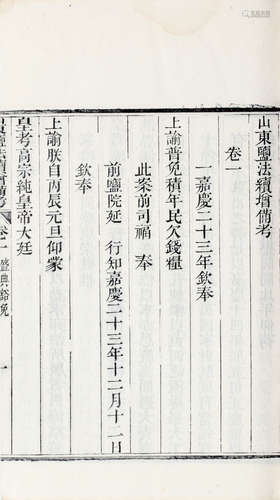 山東鹽法續增備考
卷一
一嘉慶二十三年欽奉
上諭普免積年民欠錢糧
此案前司福 奉
前鹽院延 行知嘉慶二十三年十二月十一日
欽奉
上諭朕自丙辰元旦仰蒙
皇考高宗純皇帝大廷
山東鹽法續增備考 卷一 盛典谿免 一